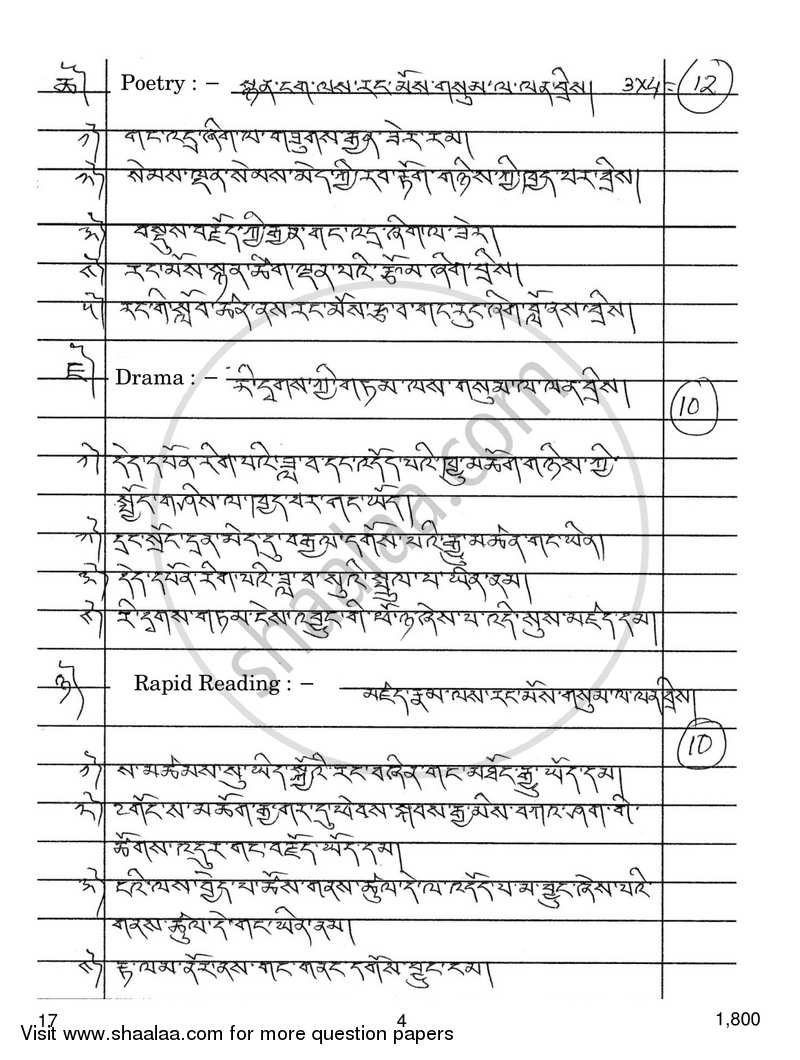 ཆ༽ Poetry : – སྙན་ངག་ལས་རང་མོས་གསུམ་ལ་ལན་བྲིས། 3×4= 12
༡༽ གང་འདྲ་ཞིག་ལ་གཟུགས་རྒྱན་ཟེར་རམ།
༢༽ སེམས་ལྡན་སེམས་མེད་ཀྱི་རབ་རྟོག་གཉིས་ཀྱི་ཁྱད་པར་བྲིས།
༣༽ བསྡུས་བརྗོད་ཀྱི་རྒྱན་གང་འདྲ་ཞིག་ལ་ཟེར།
༤༽ རང་མོས་སྙན་ཚིག་ལྡན་པའི་རྩོམ་ཞིག་བྲིས།
༥༽ རང་གི་སློབ་ཚན་ནས་རང་མོས་རྩ་བ་གང་རུང་ཞིག་བློ་ནས་བྲིས།
ཇ༽ Drama : – རི་དྭགས་ཀྱི་གཏམ་ལས་གསུམ་ལ་ལན་བྲིས།
10
༡༽ དེད་དཔོན་རིག་པའི་ཟླ་བ་དང་འདོད་པའི་ གཉིས་ཀྱི་
སྤྱོད་གཤིས་ལ་ཁྱད་པར་གང་ཡོད།
༢༽ དྲང་སྲོང་དྲན་མེད་དུ་བརྒྱལ་དགོས་པའི་རྒྱུ་མཚན་གང་ཡིན།
༣༽ དེད་དཔོན་རིག་པའི་ཟླ་བ་སུའི་སྤྲུལ་པ་ཡིན་ནམ།
༤༽ རི་དྭགས་གཏམ་ངེས་འབྱུང་གི་ ཞེས་པ་འདི་སུས་མཛད་དམ།
ཉ༽ Rapid Reading : – མཛད་རྣམ་ལས་རང་མོས་གསུམ་ལ་ལན་བྲིས།
10
༡༽ ས་མཚམས་སུ་ རང་བཞིན་གང་མཐོང་རྒྱུ་ཡོད་དམ།
༢༽ ༸གོང་ས་མཆོག་རྒྱ་གར་དུ་ཕེབས་སྐབས་རྒྱ་མིས་བཀའ་ཤག་གི་
ཚོགས་འདུར་གང་བརྗོད་ཡོད་དམ།
༣༽ ངའི་ལས་བྱེད་པ་ཚོས་གནས་ཚུལ་དེ་ལ་འདོད་པ་མ་བྱུང་ཞེས་པའི་
གནས་ཚུལ་དེ་གང་ཡིན་ནམ།
༤༽ རྟ་ལམ་ ནས་གང་གནང་དགོས་བྱུང་ངམ།
shaalaa.com
17 4 1,800
Visit www.shaalaa.com for more question papers